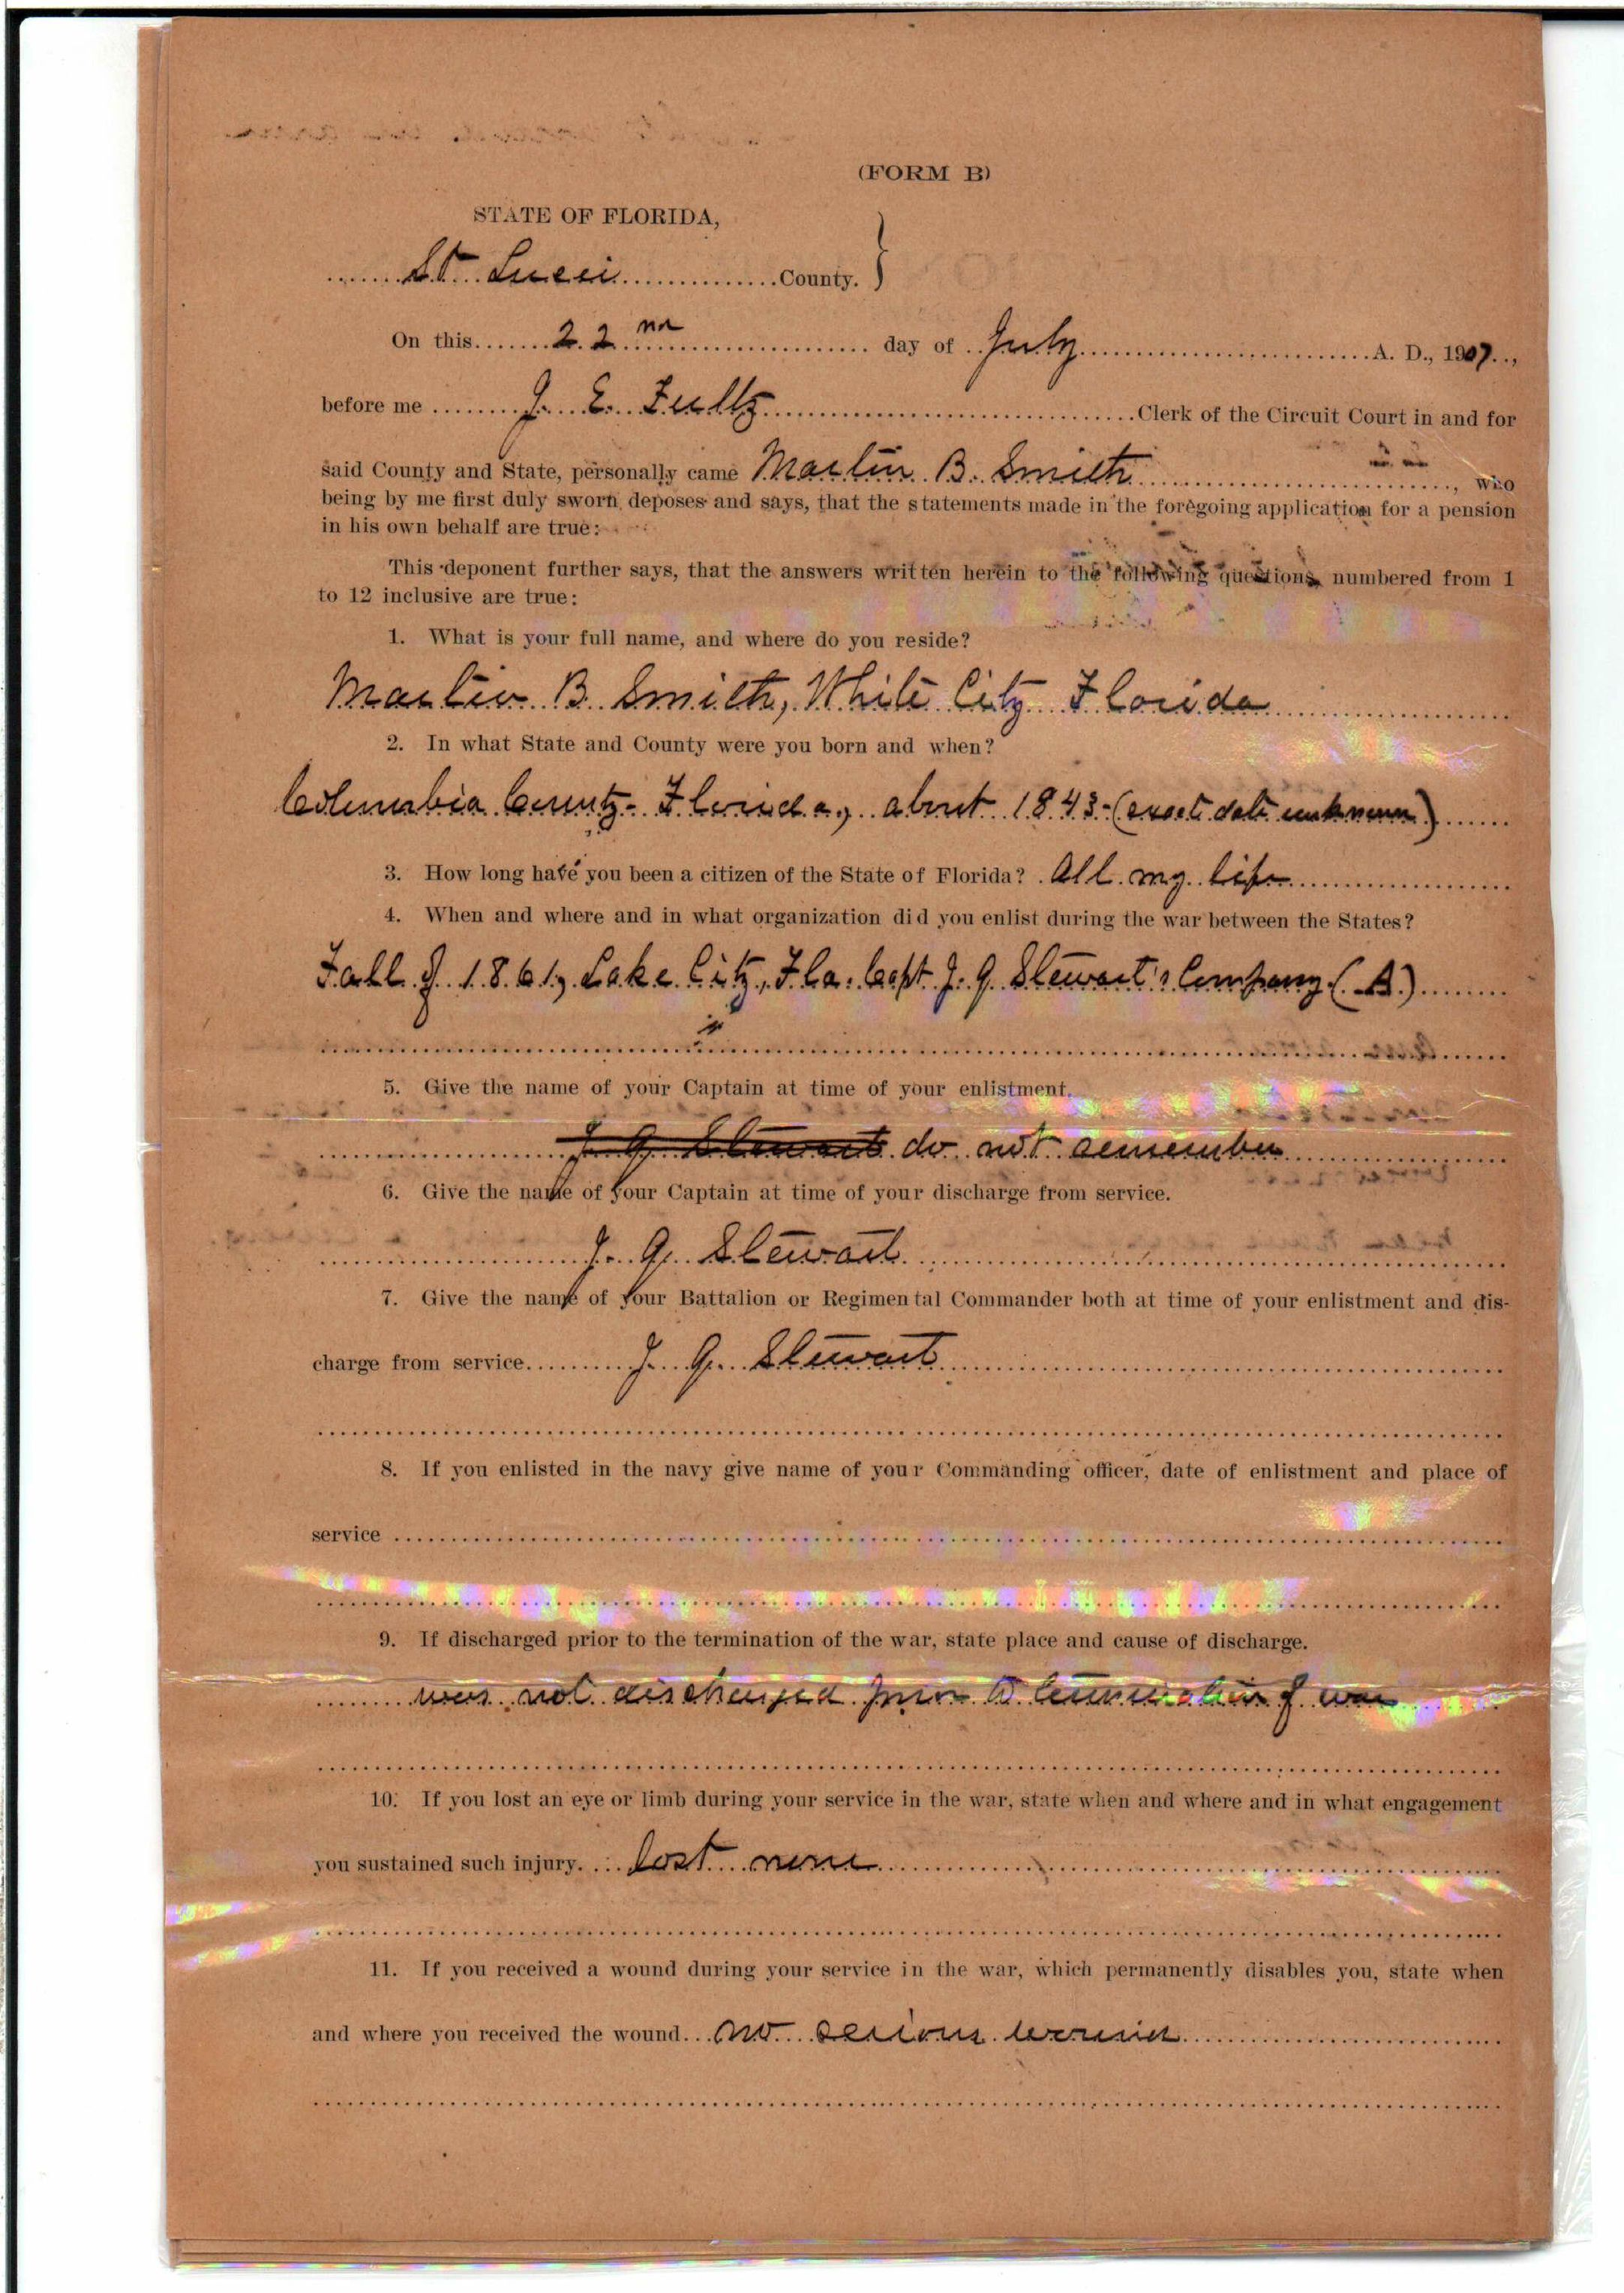 (FORM B)
STATE OF FLORIDA,
St. Luci County.
On this 22nd day of July A. D., 1907,
before me J. E. Fultz Clerk of the Circuit Court in and for
said County and State, personally came Martin B. Smith, who
being by me first duly sworn, deposes and says, that the statements made in the foregoing application for a pension
in his own behalf are true:
This deponent further says, that the answers written herein to the following questions numbered from 1
to 12 inclusive are true:
1. What is your full name, and where do you reside?
Martin B. Smith, White City Florida
2. In what State and County were you born and when?
Columbia County - Florida, about 1843 - (exact date unknown)
3. How long have you been a citizen of the State of Florida? All my life
4. When and where and in what organization did you enlist during the war between the States?
Fall of 1861, Lake City, Fla. Capt J. G. Stewart's Company (A)
5. Give the name of your Captain at time of your enlistment.
J. G. Stewart do not remember
6. Give the name of your Captain at time of your discharge from service.
J. G. Stewart
7. Give the name of your Battalion or Regimental Commander both at time of your enlistment and dis-
charge from service J. G. Stewart
8. If you enlisted in the navy give name of your Commanding officer, date of enlistment and place of
service
9. If discharged prior to the termination of the war, state place and cause of discharge.
was not discharged prior to termination of war
10. If you lost an eye or limb during your service in the war, state when and where and in what engagement
you sustained such injury. lost none
11. If you received a wound during your service in the war, which permanently disables you, state when
and where you received the wound. no serious wound